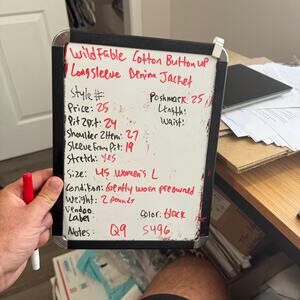 Wildfable Cotton Button up
Longsleeve Denim Jacket
Style#: Poshmark: 25
Price: 25 Length:
Pit 2 pit: 24 Waist:
Shoulder 2 Hem: 27
Sleeve from Pit: 19
Stretch: yes
Size: US Women's L
Condition: Gently worn preowned
Weight: 2 pounds
Vendoo
Label: Color: black
Notes: Q9 5496